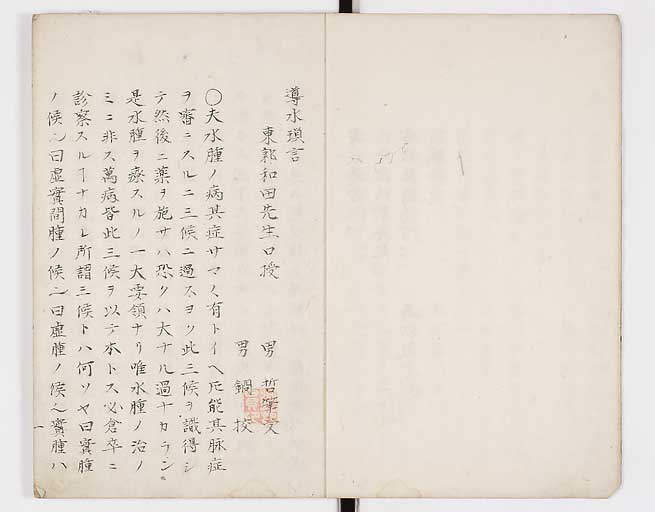 導水瑣言
東郭和田先生口授
男 哲肇文
男 鋼校
〇夫水腫ノ病其症サマ〱有トイヘ𪜈能其脉症
ヲ審ニスルニ三候ニ過スヨツ此三候ヲ識得シ
テ然後ニ藥ヲ施サハ恐クハ大ナル過ナカラン
是水腫ヲ療スルノ一大要領ナリ唯水腫ノ治ノ
ミニ非ス萬病皆此三候ヲ以テ本トス必倉卒ニ
診察スルヿナカレ所謂三候トハ何ソヤ曰實腫
ノ候二曰虚實間腫ノ候二曰虚腫ノ候也實腫ハ